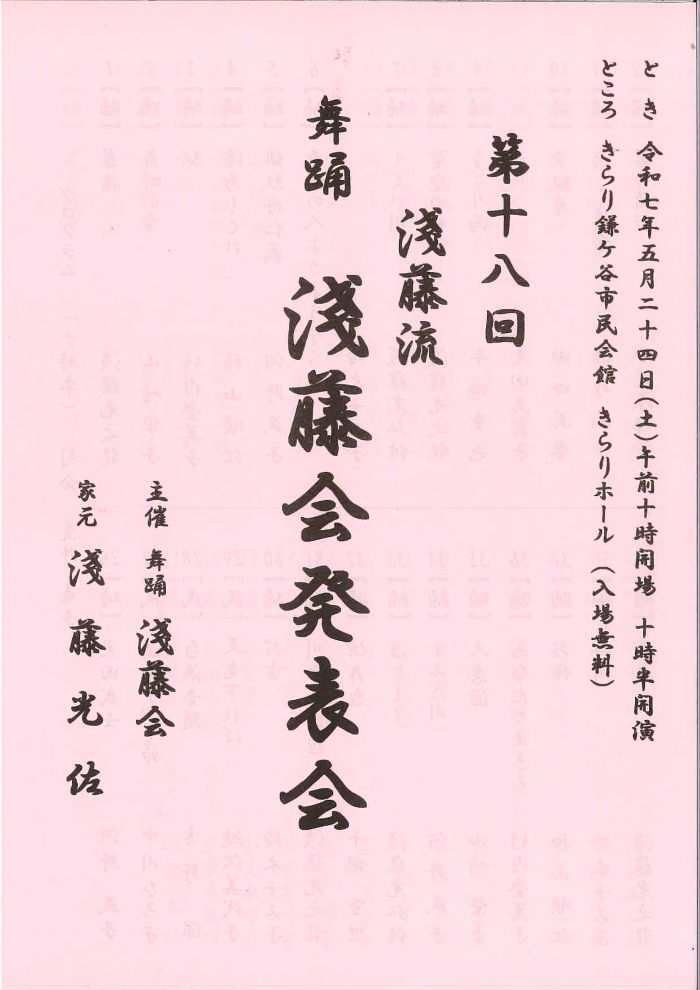 とき 令和七年五月二十四日(土)午前十時開場 十時半開演
ところ きらり鎌ケ谷市民会館 きらりホール (入場無料)
第十八回
淺藤流
舞踊 淺藤会発表会
主催 舞踊 淺藤会
家元 淺藤光佐